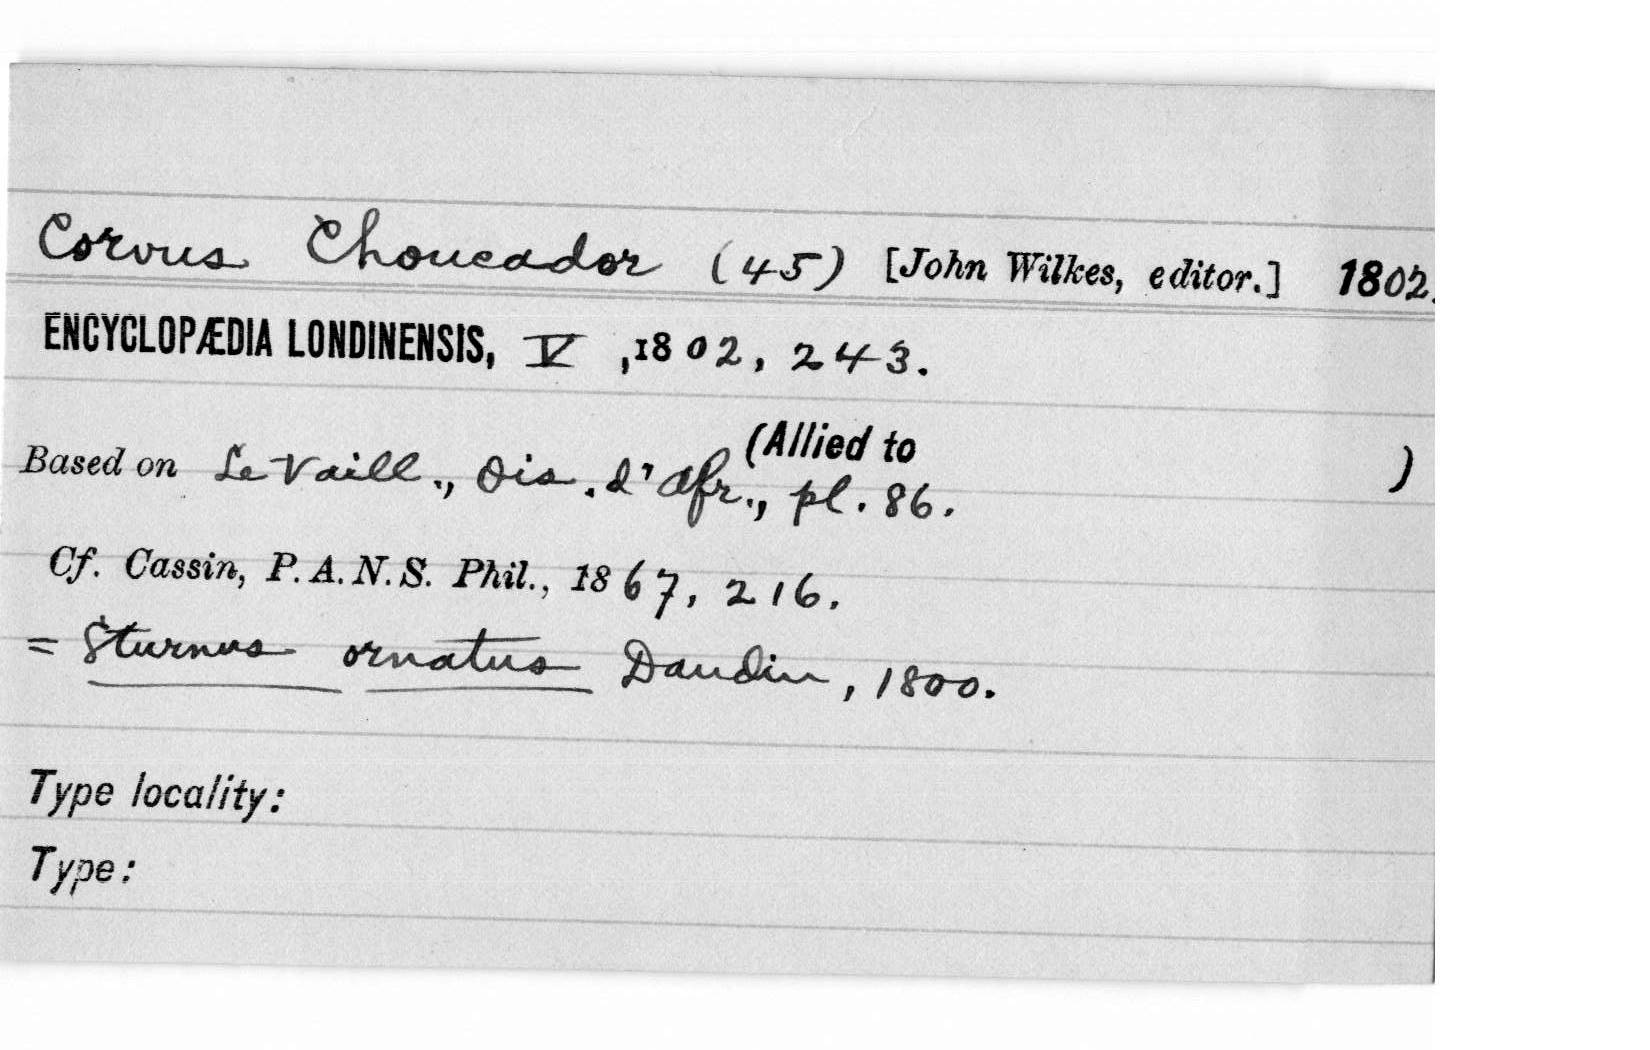 Corvus Choucador (45) [John Wilkes, editor.] 1802.
ENCYCLOPÆDIA LONDINENSIS, V, 1802, 243.
(Allied to )
Based on Le Vaill., Ois. d'Afr., pl. 86.
Cf. Cassin, P. A. N. S. Phil., 1867, 216.
= Sturnus ornatus Daudin, 1800.
Type locality:
Type: